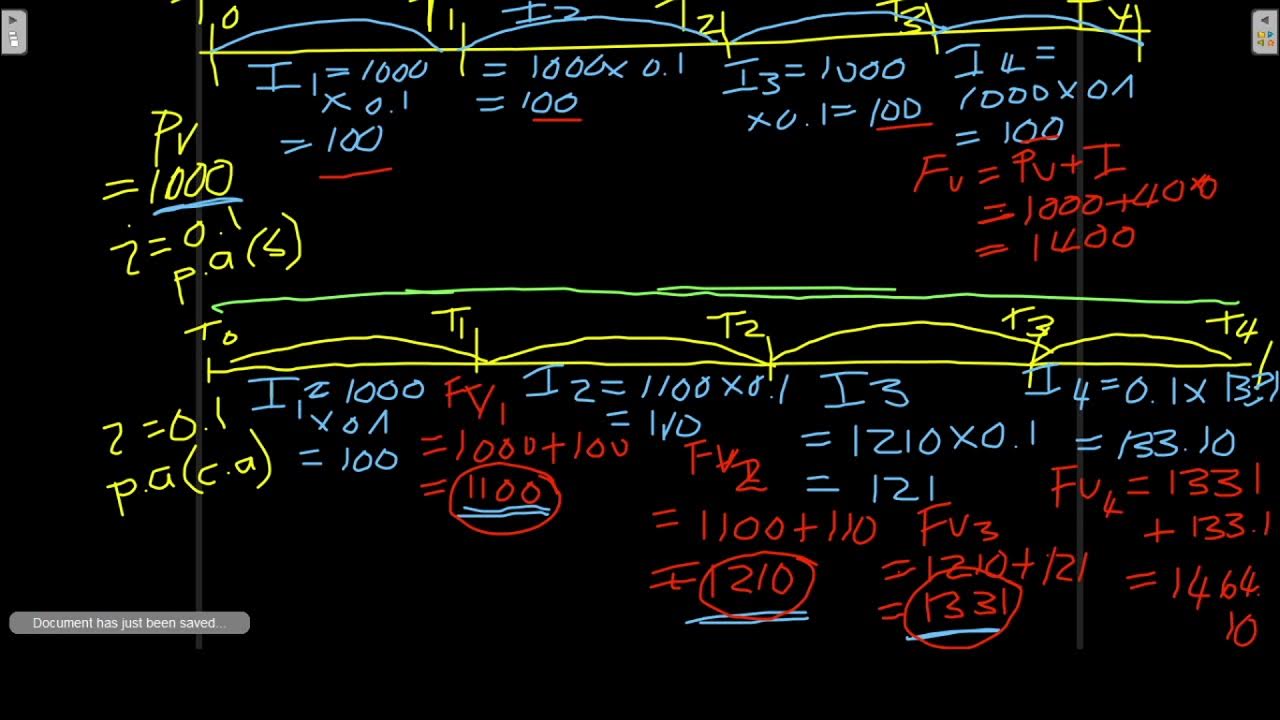 T0 T1 I2 T2 T3 T4
I1 = 1000
× 0.1
= 100
= 1000 × 0.1
= 100
I3 = 1000
× 0.1 = 100
I4 =
1000 × 0.1
= 100
Pv
= 1000
i = 0.1
p.a (s)
Fv = Pv + I
= 1000 + 400
= 1400
T0 T1 T2 T3 T4
i = 0.1
p.a (c.a)
I1 = 1000
× 0.1
= 100
FV1
= 1000 + 100
= 1100
I2 = 1100 × 0.1
= 110
FV2
= 1100 + 110
= 1210
I3
= 1210 × 0.1
= 121
Fv3
= 1210 + 121
= 1331
I4 = 0.1 × 1331
= 133.10
Fv4 = 1331
+ 133.1
= 1464.
10
Document has just been saved...